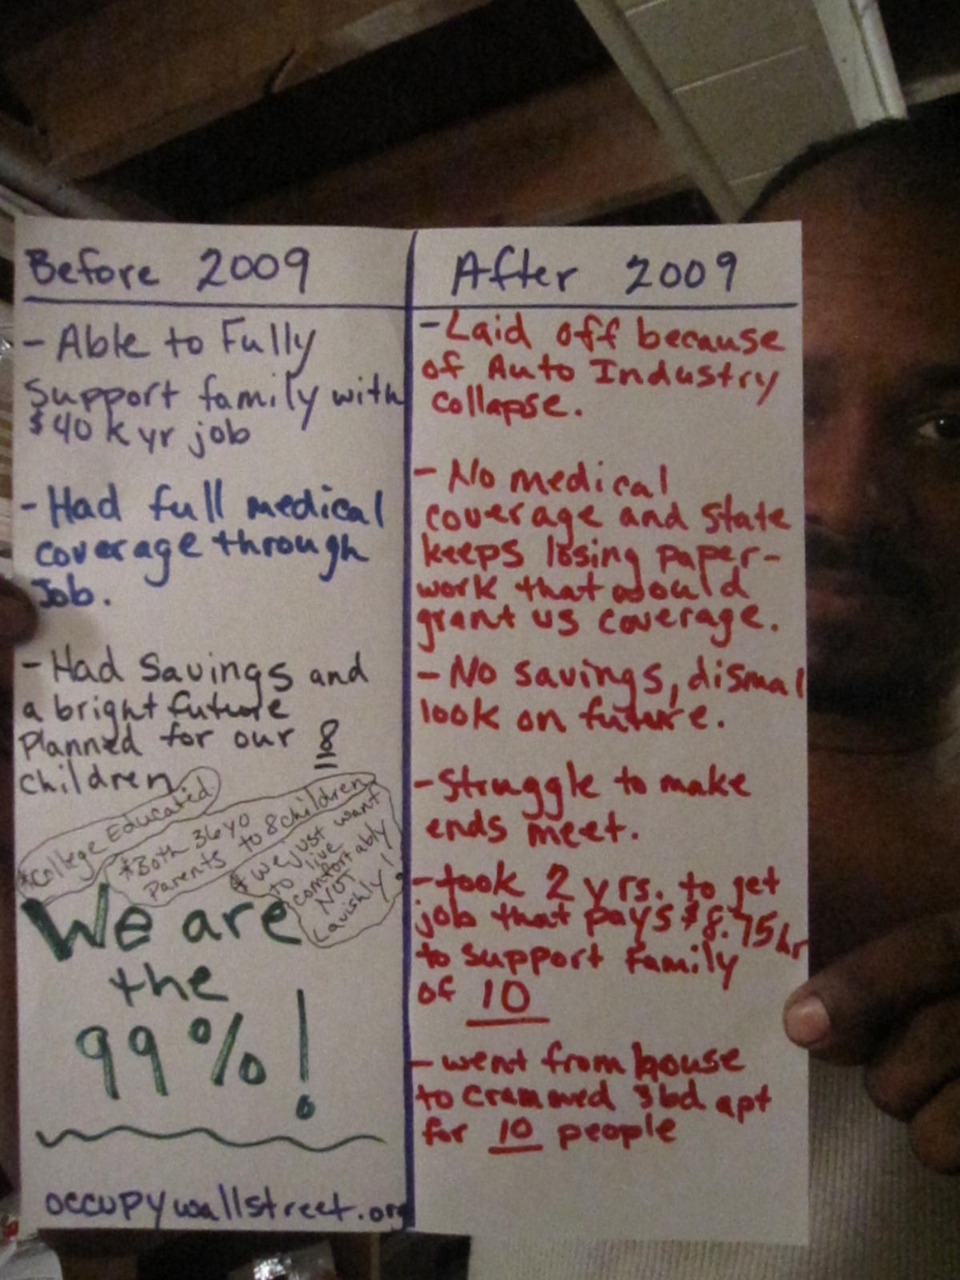 Before 2009
- Able to Fully
support family with
$40 k yr job
- Had full medical
coverage through
Job.
- Had savings and
a bright future
planned for our 8
children
*College Educated
*Both 36 yo
parents to 8 children
* we just want
to live
comfortably
NOT
Lavishly!
We are
the
99%!
occupywallstreet.org
After 2009
- Laid off because
of Auto Industry
collapse.
- No medical
coverage and state
keeps losing paper-
work that would
grant us coverage.
- No savings, dismal
look on future.
- Struggle to make
ends meet.
- took 2 yrs. to get
job that pays $8.75hr
to support family
of 10
- went from house
to crammed 3bd apt
for 10 people